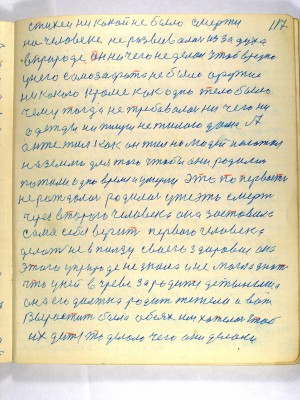 117
стихеи никакой не было смерти
на человека не развивалось из за духа
в природе он ничего не делал чтоб вредно
у него самозащиты не было оружие
никакого кроме как одно тело было
чему тогда не требовалось ни чего ни
одежды ни пищи ни жилого дома А
он жил на людей
на землю для того чтобы они родились
пожили одно время и умерли это то первость
не рождался родился уже эть смерть
через второго человека она заставила
сама себя верить первого человека
делать не в пользу своего здоровья она
этого у природе не знала и не могла знать
что у ней в чреве зародится детина
она его должна родить тяжело и вот
Вырастить было обоих им хотелось чтоб
их дети то делали чего они делали